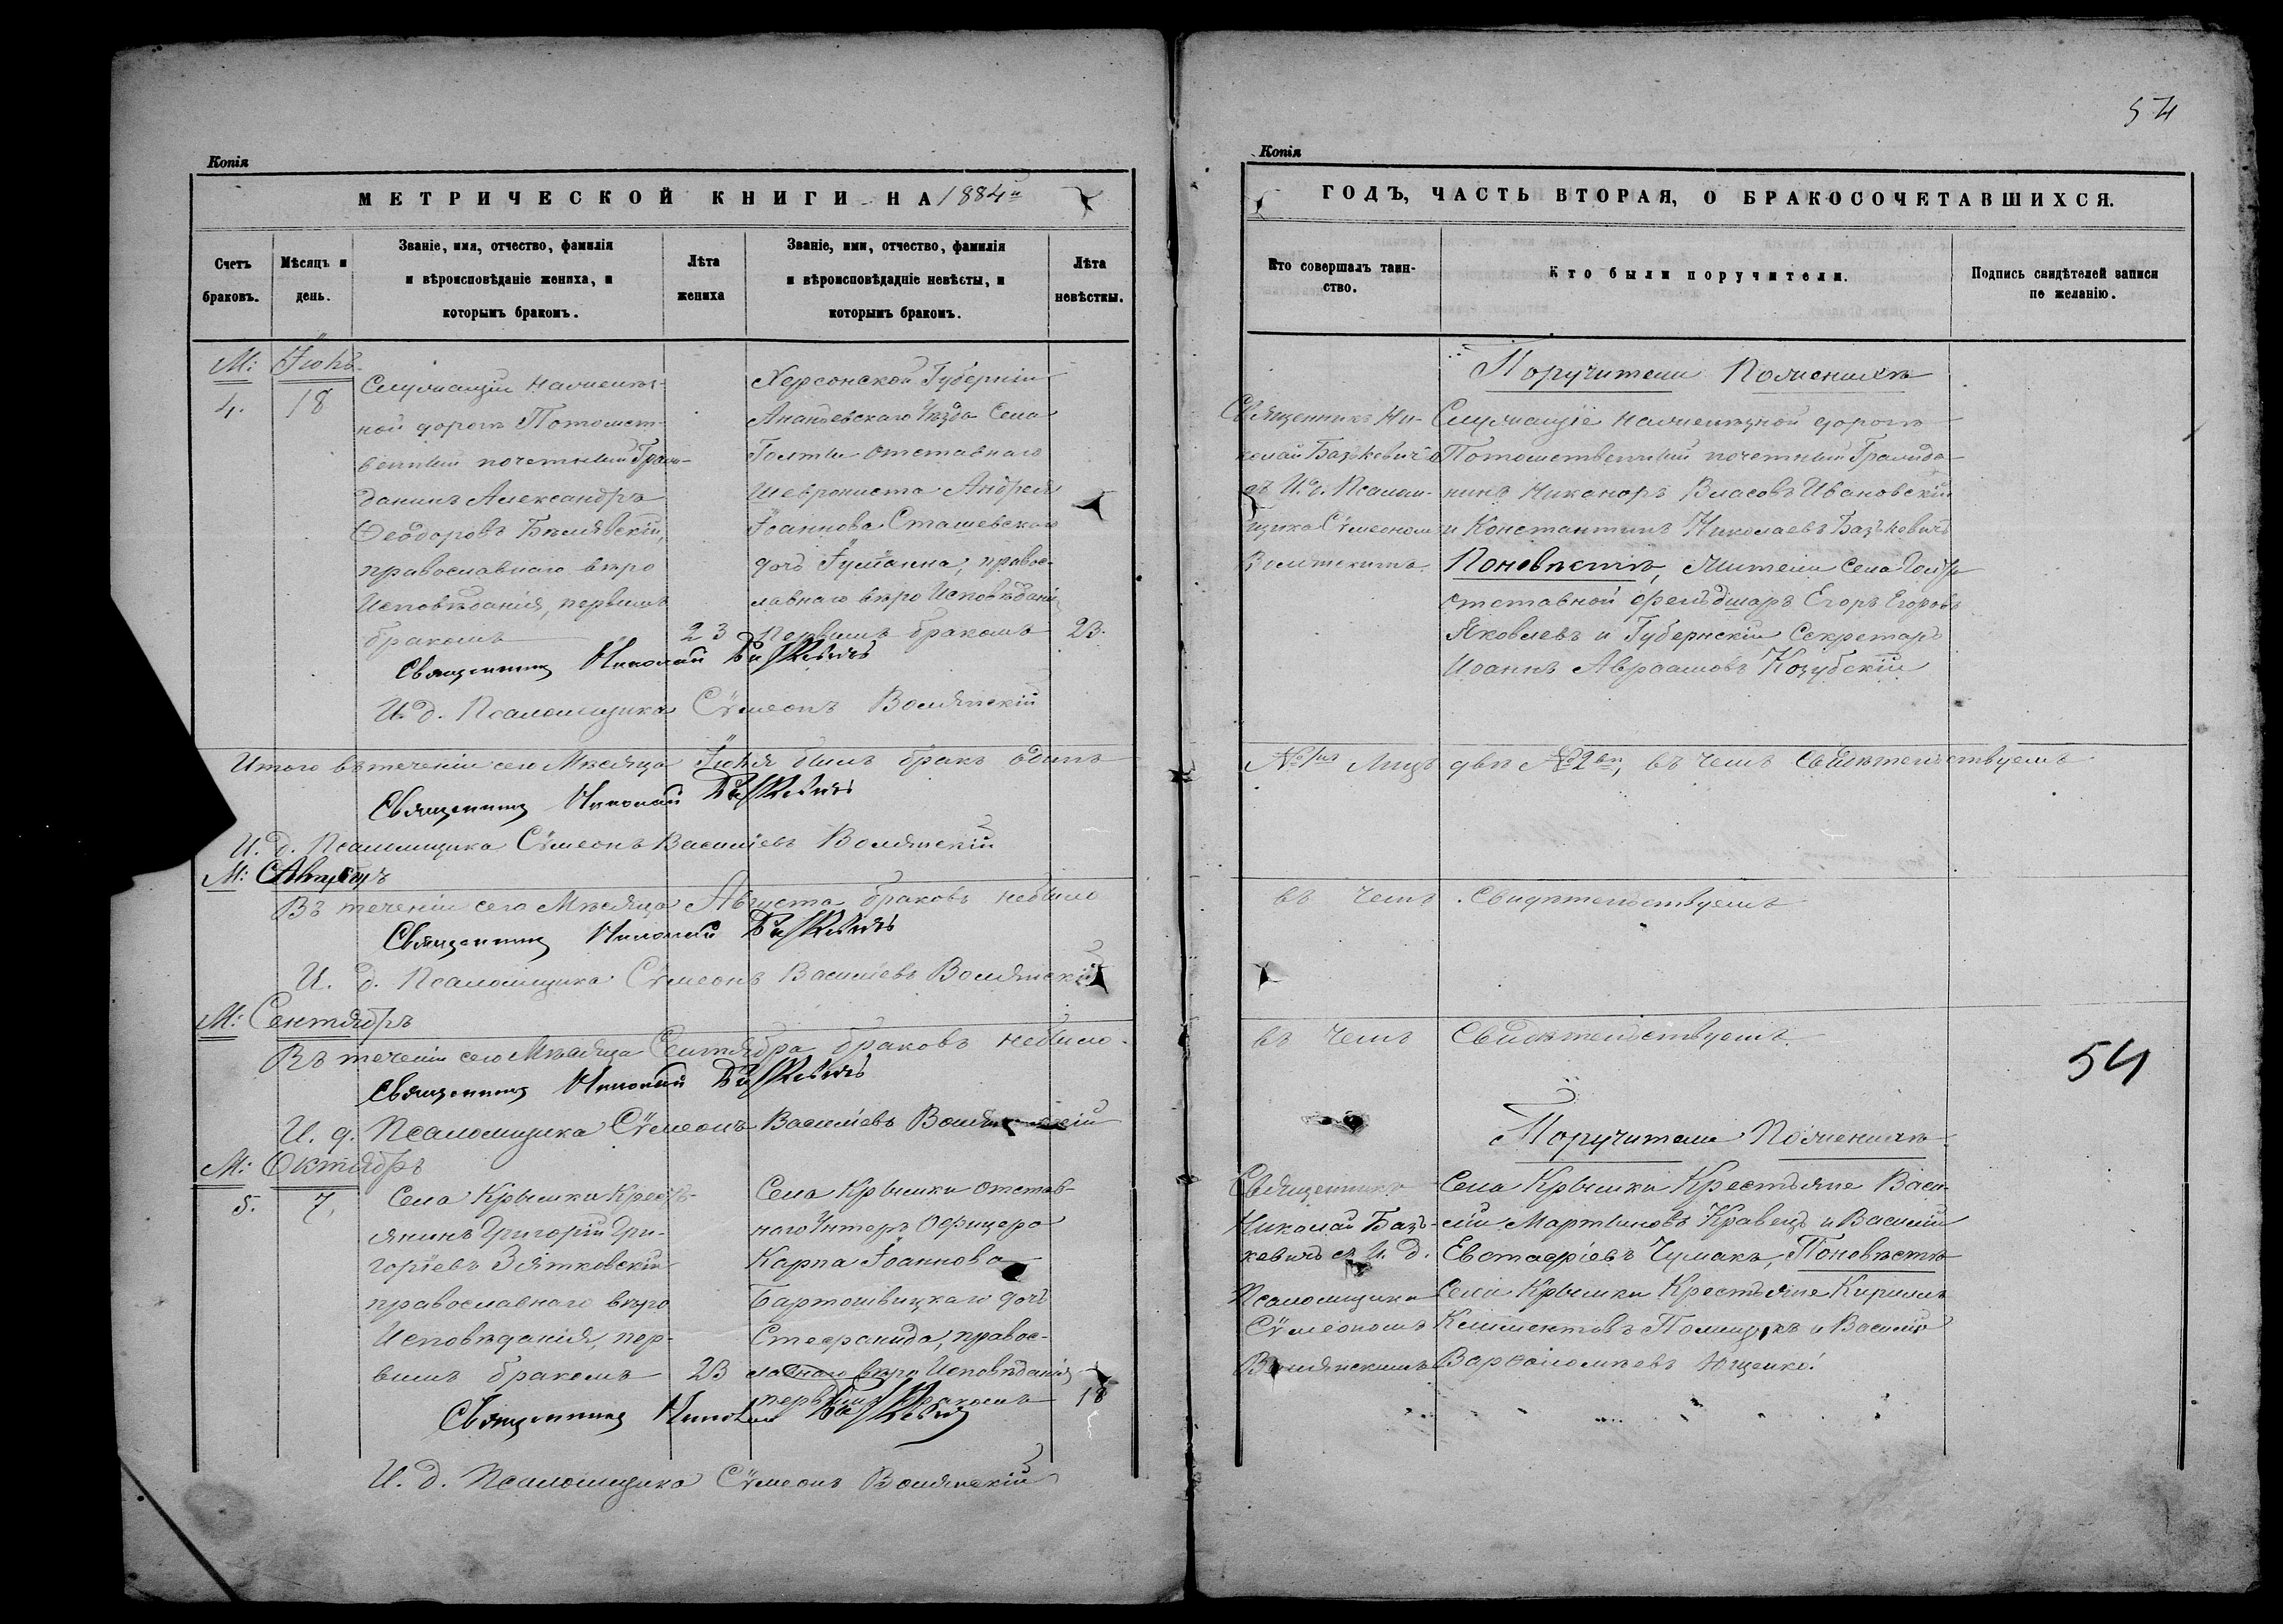 Копія
МЕТРИЧЕСКОЙ КНИГИ НА 1884й
Счетъ браковъ.
Мѣсяцъ и день.
Званіе, имя, отчество, фамилія
и вѣроисповѣданіе жениха, и
которымъ бракомъ.
Лѣта
жениха
Званіе, имя, отчество, фамилія
и вѣроисповѣдадніе невѣсты, и
которымъ бракомъ.
Лѣта
невѣсты.
М:
4. 18
Служащій на желѣз-
ной дорогѣ Потомст-
венный почетный Граж-
данинъ Александръ
Ѳеодоровъ Бѣлявскій,
православнаго вѣро
Исповѣданія, первымъ
бракомъ 23
Херсонской Губерніи
Ананьевскаго Уѣзда Села
Голты отставнаго
Андрея
Іоаннова Сташевскаго
дочь Іуліанна, правос-
лавнаго вѣро Исповѣданія
первымъ бракомъ 23.
Священникъ Николай Базькевичъ
И. д. Псаломщика Сѵмеонъ Волянскій
Итого въ теченіи сего Мѣсяца былъ бракъ одинъ
Священникъ Николай Базькевичъ
И. д. Псаломщика Сѵмеонъ Василіевъ Волянскій
М:
Въ теченіи сего Мѣсяца Августа браковъ небыло
Священникъ Николай Базькевичъ
И. д. Псаломщика Сѵмеонъ Василіевъ Волянскій
М: Сентябрь
Въ теченіи сего Мѣсяца Сентября браковъ небыло.
Священникъ Николай Базькевичъ
И. д. Псаломщика Сѵмеонъ Василіевъ Волянскій
М: Октябрь
5. 7.
Села Крымки Крест-
янинъ Григорій Гри-
горіевъ Зятковскій
православнаго вѣро
Исповѣданія, пер-
вымъ бракомъ 23
Села Крымки отстав-
наго Унтеръ Офицера
Карпа Іоаннова
дочь
Стефанида, правос-
лавнаго вѣро Исповѣданія
первымъ бракомъ 18
Священникъ Николай Базькевичъ
И. д. Псаломщика Сѵмеонъ Волянскій
54
Копія
ГОДЪ, ЧАСТЬ ВТОРАЯ, О БРАКОСОЧЕТАВШИХСЯ.
Кто совершалъ таин-
ство.
Кто были поручители.
Подпись свидѣтелей записи
по желанію.
Поручители По женихѣ
Священникъ Ни-
колай Базькевичъ
съ И. д. Псалом-
щика Сѵмеономъ
Служащіе на желѣзной дорогѣ
Потомственный почетный Гражда-
нинъ Никаноръ Власовъ Ивановскій
и Константинъ Николаевъ Базькевичъ
По невѣстѣ, жители Села Голты
отставной фельдшаръ Егоръ Егоровъ
Яковлевъ и Губернскій Секретарь
Иоаннъ Авраамовъ Козубскій
Лицъ двѣ въ чемъ Свидѣтельствуемъ
въ чемъ Свидѣтельствуемъ
въ чемъ Свидѣтельствуемъ
54
Поручители По женихѣ
Священникъ
Николай Базь-
кевичъ съ И. д.
Псаломщика
Сѵмеономъ
Волянскимъ
Села Крымки Крестьяне Васи-
лій Мартиновъ Кравецъ и Василій
Евстафіевъ Чумакъ, По невѣстѣ
Села Крымки Крестьяне Кириллъ
Климентовъ и Василій
Варѳоломѣевъ Ющенко.